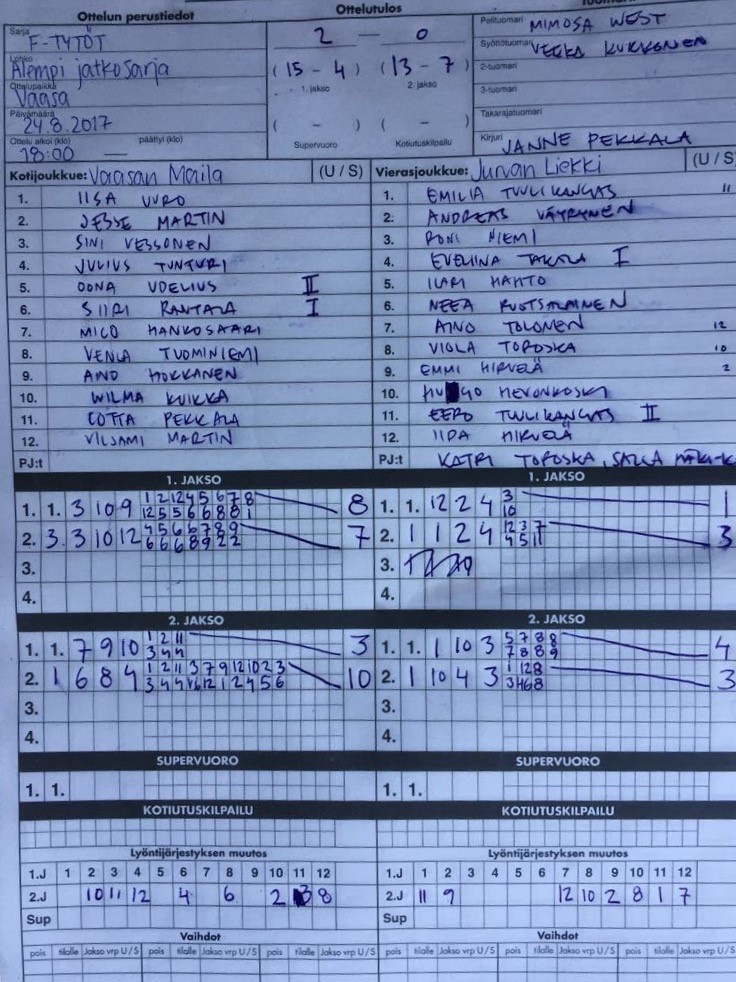 Ottelun perustiedot
Ottelutulos
Sarja
F-TYTÖT
Lohko
Alempi jatkosarja
Ottelupaikka
Vaasa
Päivämäärä
24.8.2017
Ottelu alkoi (klo) päättyi (klo)
18:00 —
2 — 0
(15 - 4) (13 - 7)
1. jakso 2. jakso
( - ) ( - )
Supervuoro Kotiutuskilpailu
Pelituomari MIMOSA WEST
Syöttötuomari VEERA KUKKONEN
2-tuomari
3-tuomari
Takarajatuomari
Kirjuri JANNE PEKKALA
Kotijoukkue: Vaasan Maila (U / S)
1. IISA VURO
2. JESSE MARTIN
3. SINI VESSONEN
4. JULIUS TUNTURI
5. OONA UDELIUS II
6. SIIRI RANTALA I
7. MICO HANKOSAARI
8. VENLA TUOMINIEMI
9. AINO HOKKANEN
10. WILMA KUIKKA
11. LOTTA PEKKALA
12. VILJAMI MARTIN
PJ:t
Vierasjoukkue: Jurvan Liekki (U / S)
1. EMILIA TUULIKANGAS 11
2. ANDREAS VÄYRYNEN
3. RONI NIEMI
4. EVELIINA TAKALA I
5. ILARI HAHTO
6. NEEA RUOTSALAINEN
7. AINO TOLONEN 12
8. VIOLA TOROSKA 10
9. EMMI HIRVELÄ 2
10. HUGO HEVONKOSKI
11. EERO TUULIKANGAS II
12. IIDA HIRVELÄ
PJ:t KATRI TOROSKA, SALLA MÄKI-K
1. JAKSO
1. 1. 3 10 9 1 2 12 4 5 6 7 8 8
12 5 5 6 6 8 8 1
2. 3. 3 10 12 4 5 6 6 7 8 9 7
6 6 6 8 9 2 2
3.
4.
1. JAKSO
1. 1. 12 2 4 3 1
10
2. 1 1 2 4 12 3 7 3
4 5 11
3.
4.
2. JAKSO
1. 1. 7 9 10 1 2 11 3
3 4 4
2. 1 6 8 4 1 2 11 3 7 9 12 10 2 3 10
3 4 4 6 12 1 2 4 5 6
3.
4.
2. JAKSO
1. 1. 1 10 3 5 7 8 8 4
7 8 8 9
2. 1 10 4 3 1 12 8 3
3 4 6 8
3.
4.
SUPERVUORO
1. 1.
SUPERVUORO
1. 1.
KOTIUTUSKILPAILU
KOTIUTUSKILPAILU
Lyöntijärjestyksen muutos
1.J 1 2 3 4 5 6 7 8 9 10 11 12
2.J 10 11 12 4 6 2 3 8
Sup
Lyöntijärjestyksen muutos
1.J 1 2 3 4 5 6 7 8 9 10 11 12
2.J 11 9 12 10 2 8 1 7
Sup
Vaihdot
pois tilalle Jakso vrp U/S pois tilalle Jakso vrp U/S pois tilalle Jakso vrp U/S
Vaihdot
pois tilalle Jakso vrp U/S pois tilalle Jakso vrp U/S pois tilalle Jakso vrp U/S